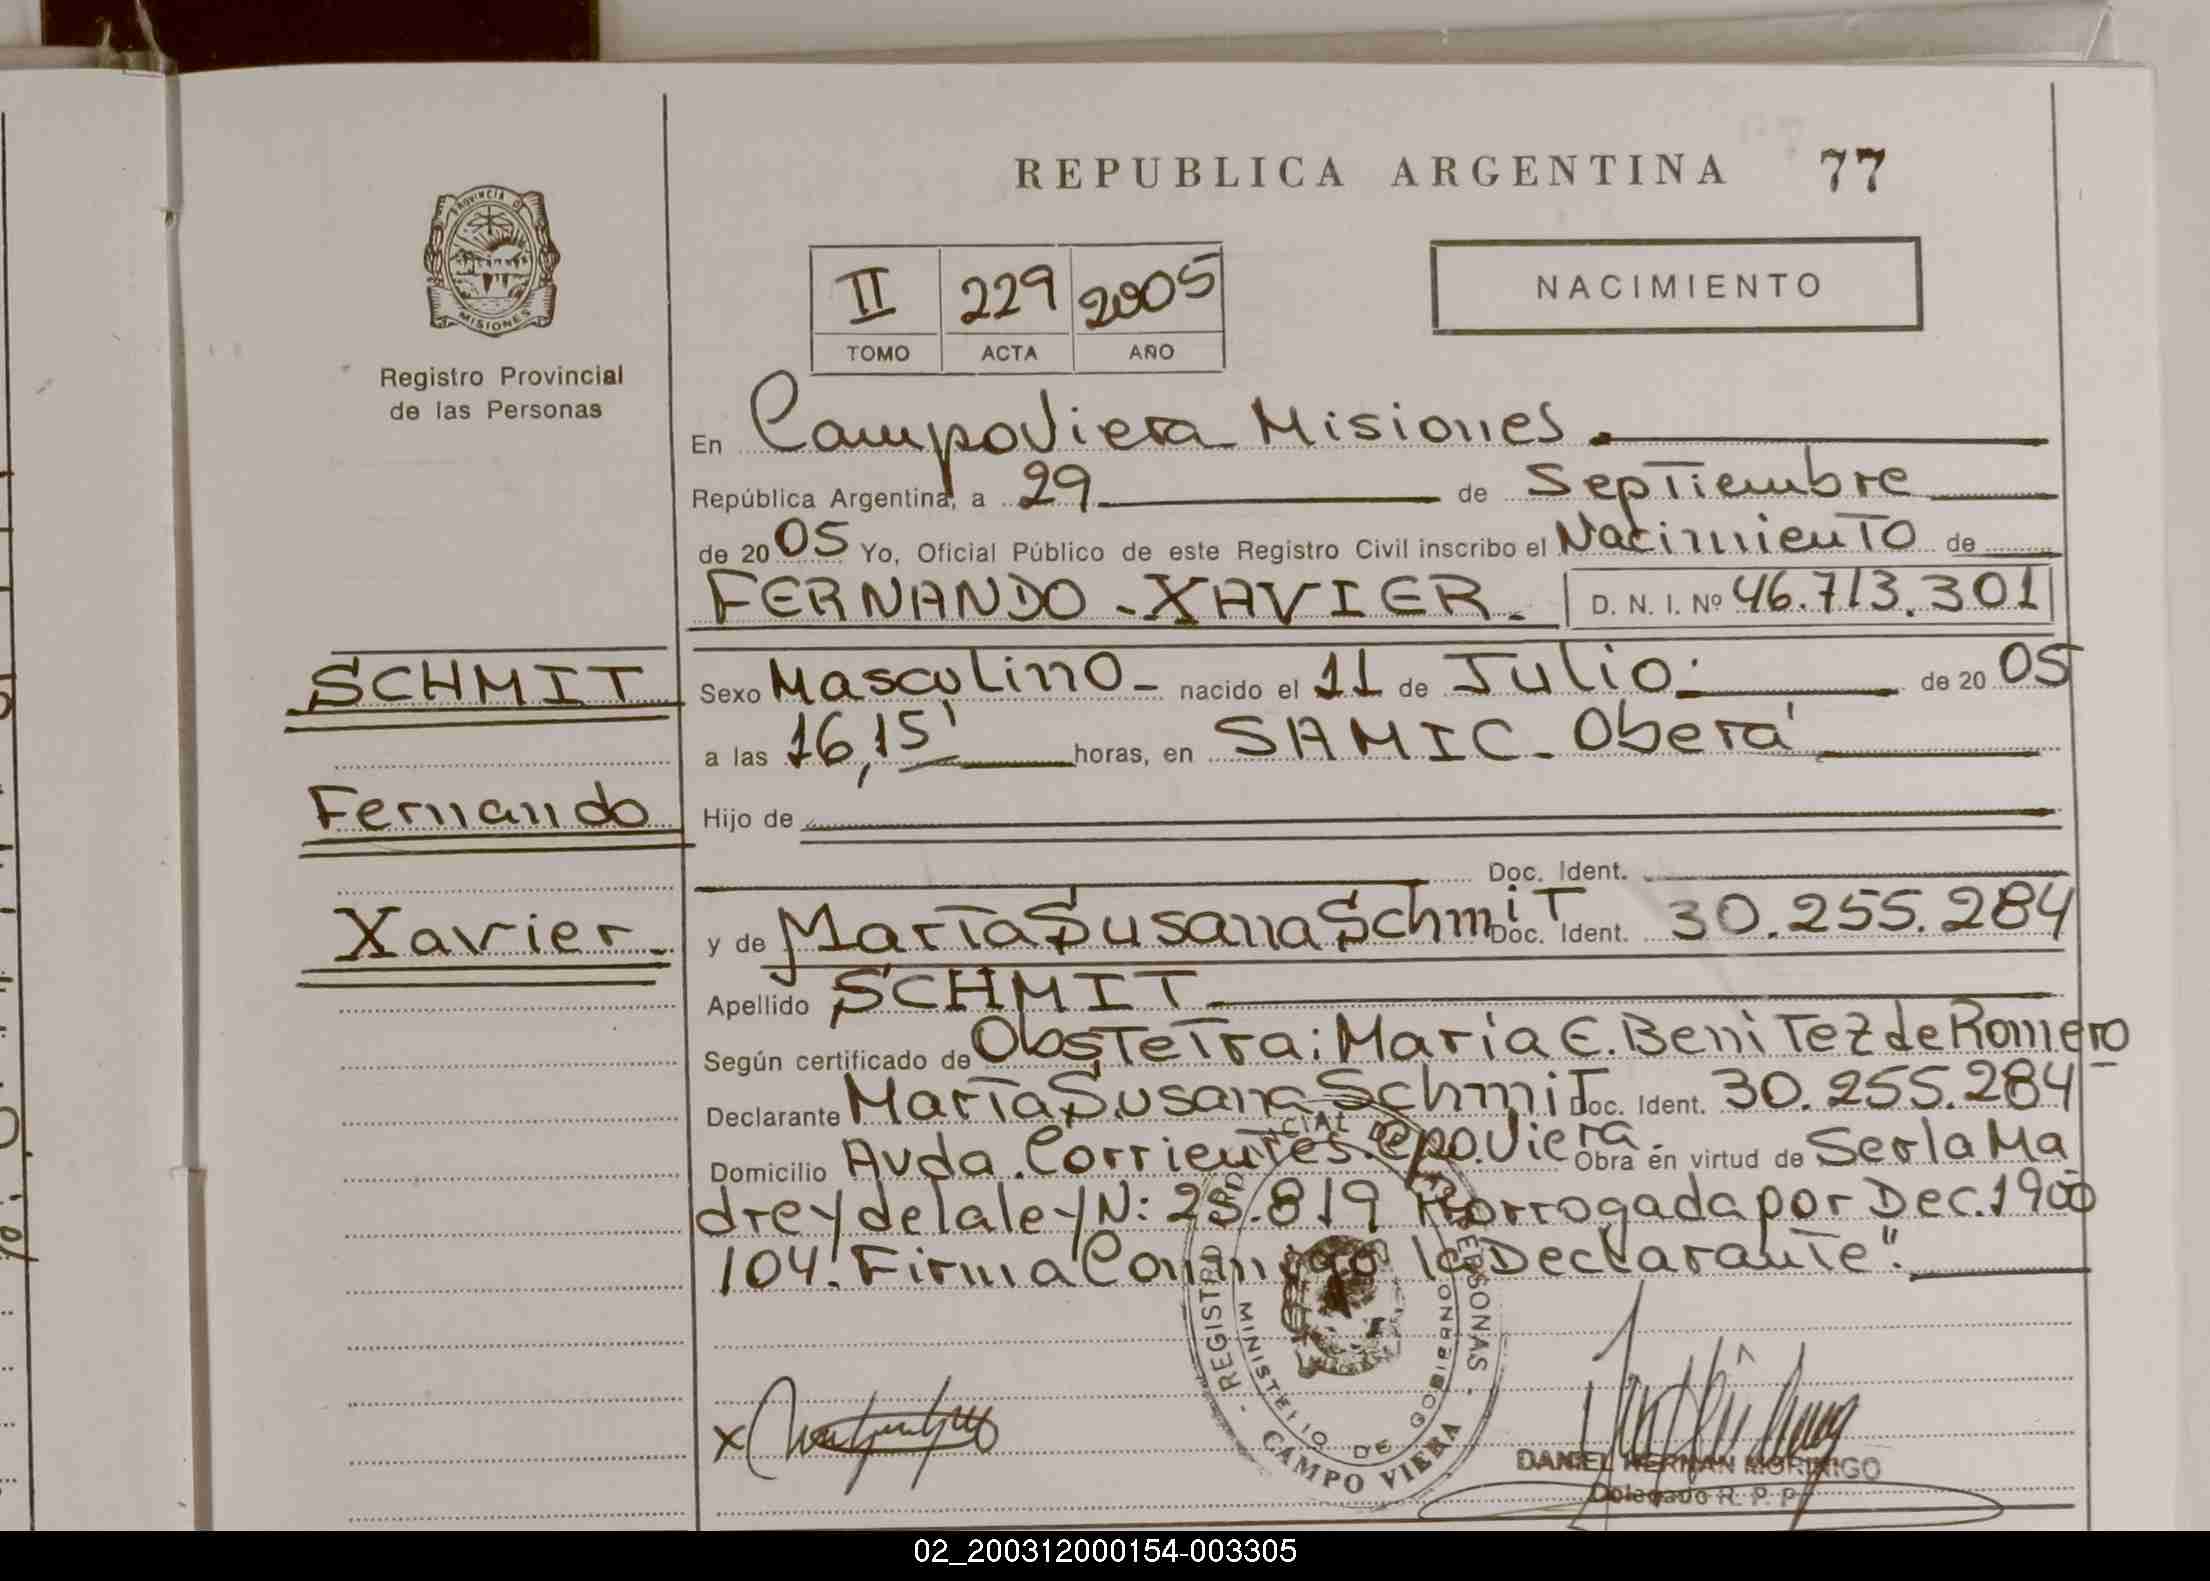 REPUBLICA ARGENTINA 77
PROVINCIA D
MISIONES
Registro Provincial
de las Personas
II 229 2005
TOMO ACTA AÑO
NACIMIENTO
En CampoViera Misiones.
República Argentina, a 29 de Septiembre
de 2005 Yo, Oficial Público de este Registro Civil inscribo el Nacimiento de
FERNANDO - XAVIER. D. N. I. Nº 46.713.301
SCHMIT
Fernando
Xavier
Sexo Masculino - nacido el 11 de Julio de 2005
a las 16,15' horas, en SAMIC - Oberá
Hijo de
Doc. Ident.
y de María Susana Schmit Doc. Ident. 30.255.284
Apellido SCHMIT
Según certificado de Obstetra: María E. Benitez de Romero
Declarante María Susana Schmit Doc. Ident. 30.255.284
Domicilio Avda. Corrientes. Cpo. Viera. Obra en virtud de Ser la Ma
dre y de la ley N: 25.819 Prorrogada por Dec. 1900
104. Firma Conmigo la Declarante".
REGISTRO PERSONAS
MINISTERIO DE GOBIERNO
CAMPO VIERA
DANIEL HERNAN MORINIGO
Delegado R. P. P
02_200312000154-003305